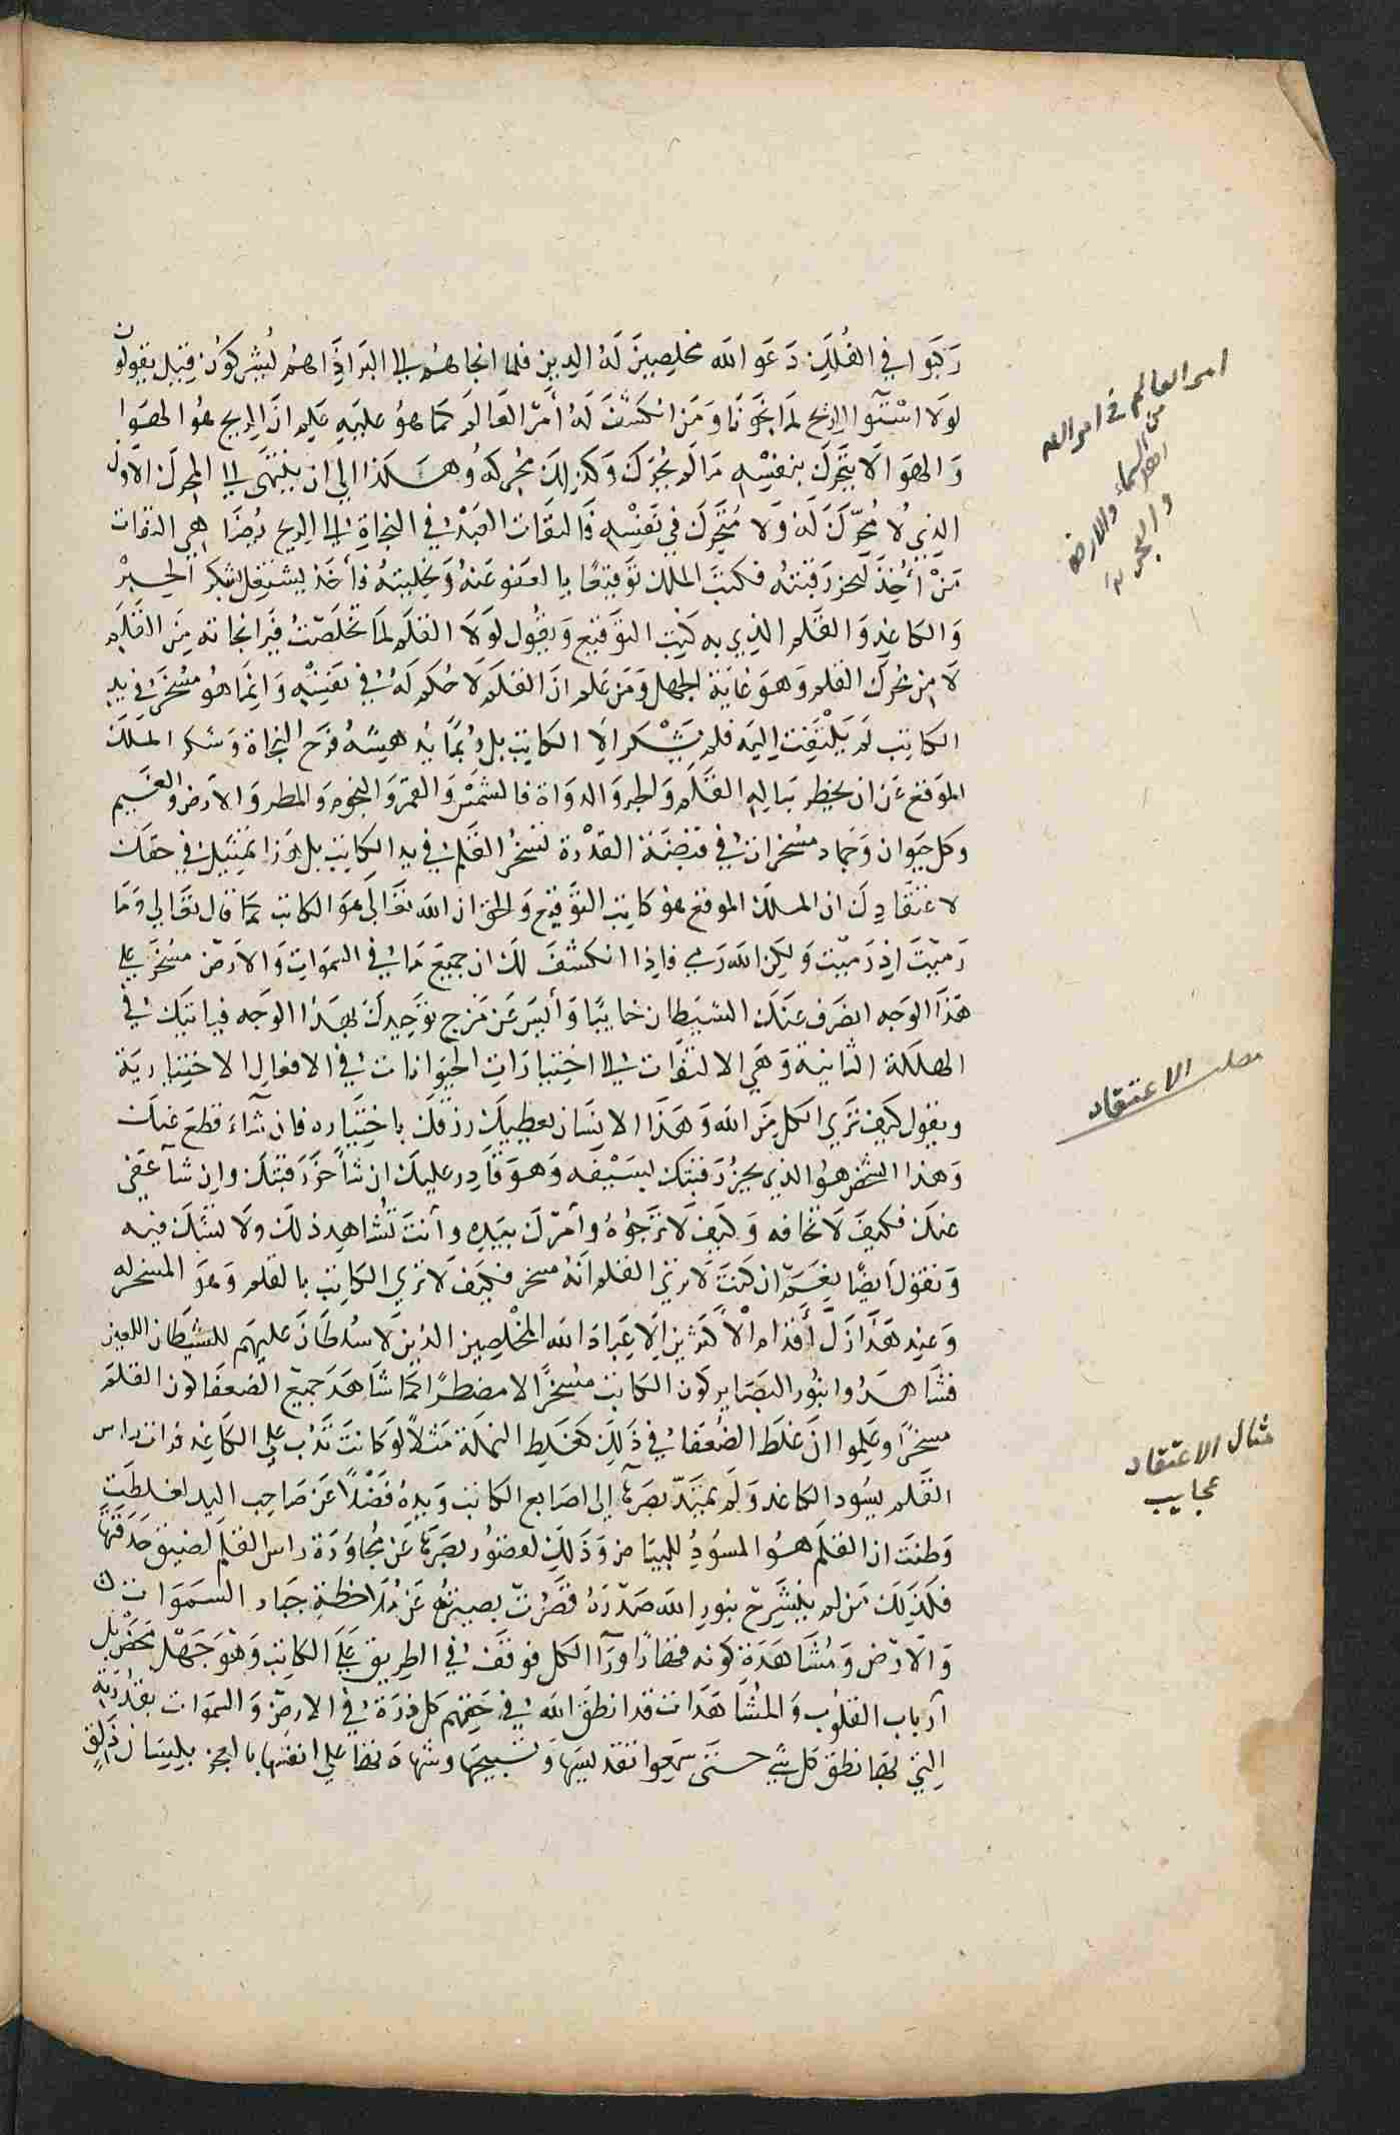 ركبوا في الفلك دعوا الله مخلصين له الدين فلما انجاهم الي البر اذا هم يشركون قيل يقولون
لولا استوا الريح لما نجونا ومن انكشف له أمر العالم كما هو عليه علم ان الريح هو الهوا
والهوا لا يتحرك بنفسه ما لم يحرك وكذلك محركه وهكذا الي ان ينتهي الي المحرك الاول
الذي لا محرك له ولا متحرك في نفسه فالتفات العبد في النجاة الي الريح يضاهي التفات
من أخذ لتحز رقبته فكتب الملك توقيعا بالعفو عنه وتخليته فأخذ يشتغل بشكر الحبر
والكاغد والقلم الذي به كتب التوقيع ويقول لولا القلم لما تخلصت فيرا نجاته من القلم
لا من محرك القلم وهو غاية الجهل ومن علم ان القلم لا حكم له في نفسه وانما هو مسخر في يد
الكاتب لم يلتفت اليه فلم يشكر الا الكاتب بل ربما يدهشه فرح النجاة وشكر الملك
الموقع عن ان يخطر بباله القلم والحبر والدواة فالشمس والقمر والنجوم والمطر والارض والغيم
وكل حيوان وجماد مسخرات في قبضة القدرة تسخر القلم في يد الكاتب بل هذا تمثيل في حقك
لاعتقادك ان الملك الموقع هو كاتب التوقيع والحق ان الله تعالى هو الكاتب كما قال تعالي وما
رميت اذ رميت ولكن الله رمي فاذا انكشف لك ان جميع ما في السموات والارض مسخر علي
هذا الوجه انصرف عنك الشيطان خايبا وأيس عن مزج توحيدك بهذا الوجه فياتيك في
المهلكة الثانية وهي الالتفات الي اختيارات الحيوانات في الافعال الاختيارية
ويقول كيف تري الكل من الله وهذا الانسان يعطيك رزقك باختياره فان شآء قطع عنك
وهذا الشخص هو الذي يحز رقبتك بسيفه وهو قادر عليك ان شا حز رقبتك وان شآ عفى
عنك فكيف لا تخافه وكيف لا ترجوه وأمرك بيده وأنت تشاهد ذلك ولا تشك فيه
ونقول أيضا نعم ان كنت لا تري القلم انه مسخر فكيف لا تري الكاتب بالقلم وهو المسخر له
وعند هذا زل أقدام الأكثرين الا عباد الله المخلصين الذين لا سلطان عليهم للشيطان اللعين
فشاهدوا بنور البصاير كون الكاتب مسخرا مضطرا كما شاهد جميع الضعفا كون القلم
مسخرا وعلموا ان غلط الضعفا في ذلك كغلط النملة مثلا لو كانت تدب علي الكاغد فرات راس
القلم يسود الكاغد ولم يمتد بصرها إلى اصابع الكاتب ويده فضلا عن صاحب اليد لغلطت
وظنت ان القلم هو المسود للبياض وذلك لقصور بصرها عن مجاوزة راس القلم لضيق حدقتها
فكذلك من لم ينشرح بنور الله صدره قصرت بصيرته عن ملاحظة جبار السموات
والارض ومشاهدة كونه قهارا ورآ الكل فوقف في الطريق علي الكاتب وهو جهل محض بل
أرباب القلوب والمشاهدات قد انطق الله في حقهم كل ذرة في الارض والسموات بقدرته
التي بها نطق كل شي حتى سمعوا تقديسها وتسبيحها وشهادتها علي انفسها بالعجز بلسان ذلق
امر العالم في امر الله
من السماء والارض
والبحر
مطلب الاعتقاد
مثال الاعتقاد
عجايب